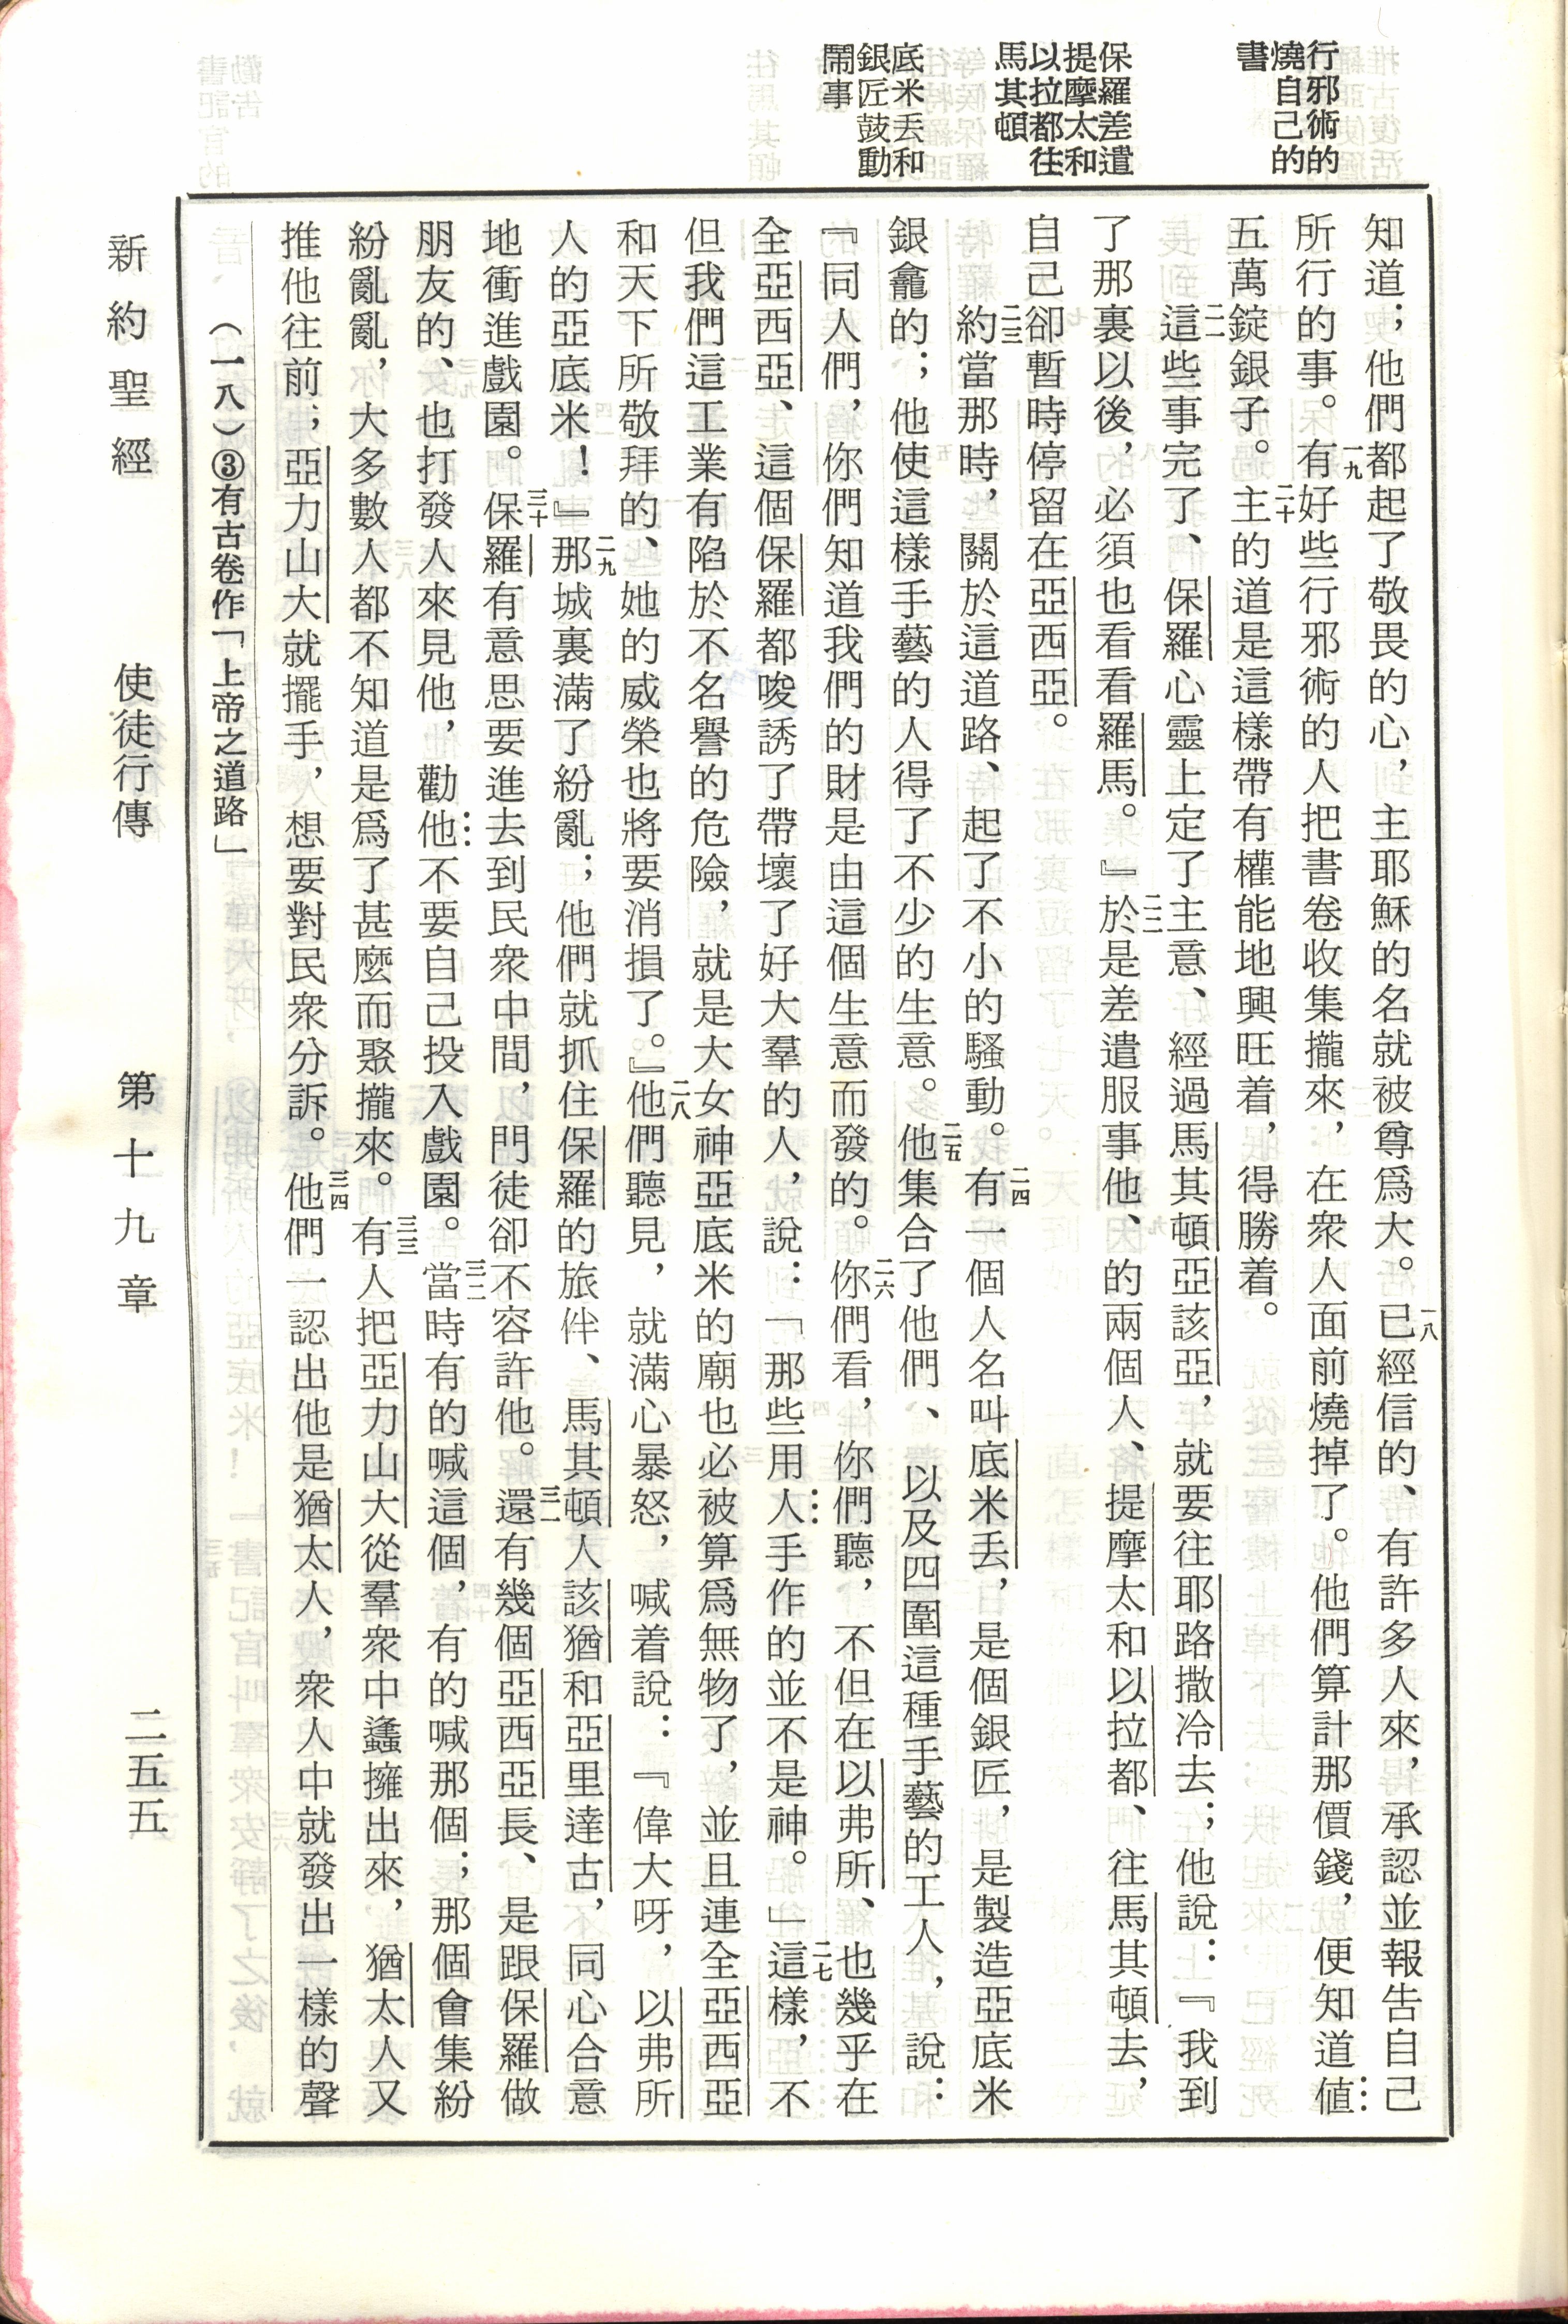 行邪術的
燒自己的
書
保羅差遣
提摩太和
以拉都往
馬其頓
底米丢和
銀匠鼓動
鬧事
知道；他們都起了敬畏的心，主耶穌的名就被尊爲大。一八已經信的、有許多人來，承認並報告自己
所行的事。一九有好些行邪術的人把書卷收集攏來，在衆人面前燒掉了。他們算計那價錢，便知道值
五萬錠銀子。二十主的道是這樣帶有權能地興旺着，得勝着。
二一這些事完了、保羅心靈上定了主意、經過馬其頓亞該亞，就要往耶路撒冷去；他說：『我到
了那裏以後，必須也看看羅馬。』二二於是差遣服事他、的兩個人、提摩太和以拉都、往馬其頓去，
自己卻暫時停留在亞西亞。
二三約當那時，關於這道路、起了不小的騷動。二四有一個人名叫底米丢，是個銀匠，是製造亞底米
銀龕的；他使這樣手藝的人得了不少的生意。二五他集合了他們、以及四圍這種手藝的工人，說：
『同人們，你們知道我們的財是由這個生意而發的。二六你們看，你們聽，不但在以弗所、也幾乎在
全亞西亞、這個保羅都唆誘了帶壞了好大羣的人，說：「那些用人手作的並不是神。」二七這樣，不
但我們這工業有陷於不名譽的危險，就是大女神亞底米的廟也必被算爲無物了，並且連全亞西亞
和天下所敬拜的、她的威榮也將要消損了。』二八他們聽見，就滿心暴怒，喊着說：『偉大呀，以弗所
人的亞底米！』二九那城裏滿了紛亂；他們就抓住保羅的旅伴、馬其頓人該猶和亞里達古，同心合意
地衝進戲園。三十保羅有意思要進去到民衆中間，門徒卻不容許他。三一還有幾個亞西亞長、是跟保羅做
朋友的、也打發人來見他，勸他不要自己投入戲園。三二當時有的喊這個，有的喊那個；那個會集紛
紛亂亂，大多數人都不知道是爲了甚麼而聚攏來。三三有人把亞力山大從羣衆中蟊擁出來，猶太人又
推他往前；亞力山大就擺手，想要對民衆分訴。三四他們一認出他是猶太人，衆人中就發出一樣的聲
（一八）③有古卷作「上帝之道路」
新約聖經　使徒行傳　第十九章　二五五